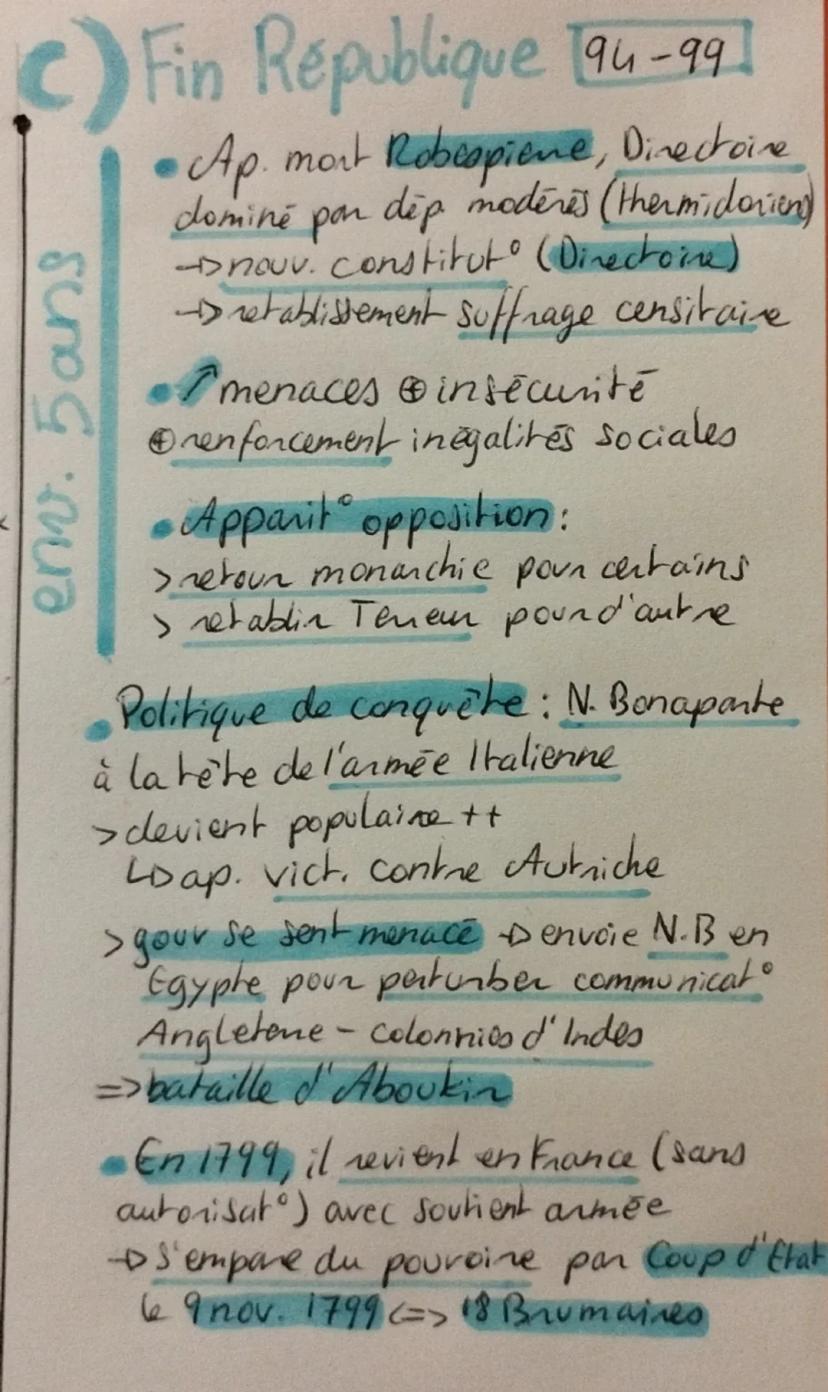 c) Fin République 94-99
env. 5ans
• Ap. mort Robespierre, Directoire
dominé par dép modérés (thermidorien)
→ nouv. constitut° (Directoire)
→ retablissement suffrage censitaire
• ↗ menaces ⊕ insécurité
⊕ renforcement inégalités sociales
• Apparit° opposition :
> retour monarchie pour certains
> retablir Terreur pour d'autre
• Politique de conquête : N. Bonaparte
à la tête de l'armée Italienne
> devient populaire ++
↳ ap. vict. contre Autriche
> gouv se sent menacé → envoie N.B en
Egypte pour perturber communicat°
Angleterre - colonnies d'Indes
=> bataille d'Aboukir
• En 1799, il revient en France (sans
autorisat°) avec soutient armée
→ s'empare du pouvoire par Coup d'Etat
le 9 nov. 1799 <=> 18 Brumaires